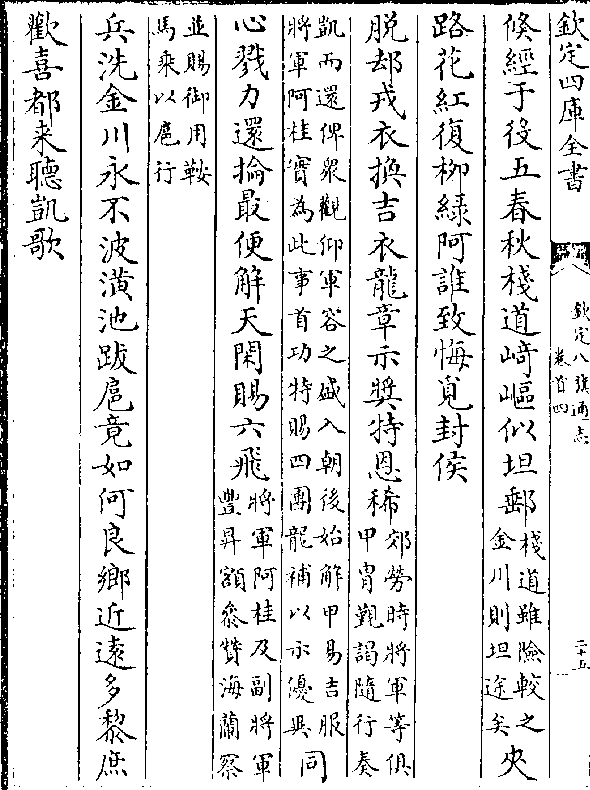 欽定四庫全書
欽定八旗通志
卷首四
二十五
倏經于役五春秋棧道﨑嶇似坦郵棧道雖險較之金川則坦途矣夾
路花紅復栁緑阿誰致悔覓封侯
脱却戎衣換吉衣龍章示奬特恩稀郊勞時將軍等俱甲胄覲謁隨行奏
凱而還俾衆觀仰軍容之盛入朝後始解甲易吉服將軍阿桂實為此事首功特賜四團龍補以示優異同
心戮力還掄最便解天閑賜六飛將軍阿桂及副將軍豐昇額叅贊海蘭察
並賜御用鞍馬乘以扈行
兵洗金川永不波潢池跋扈竟如何良鄉近遠多黎庶
歡喜都来聽凱歌